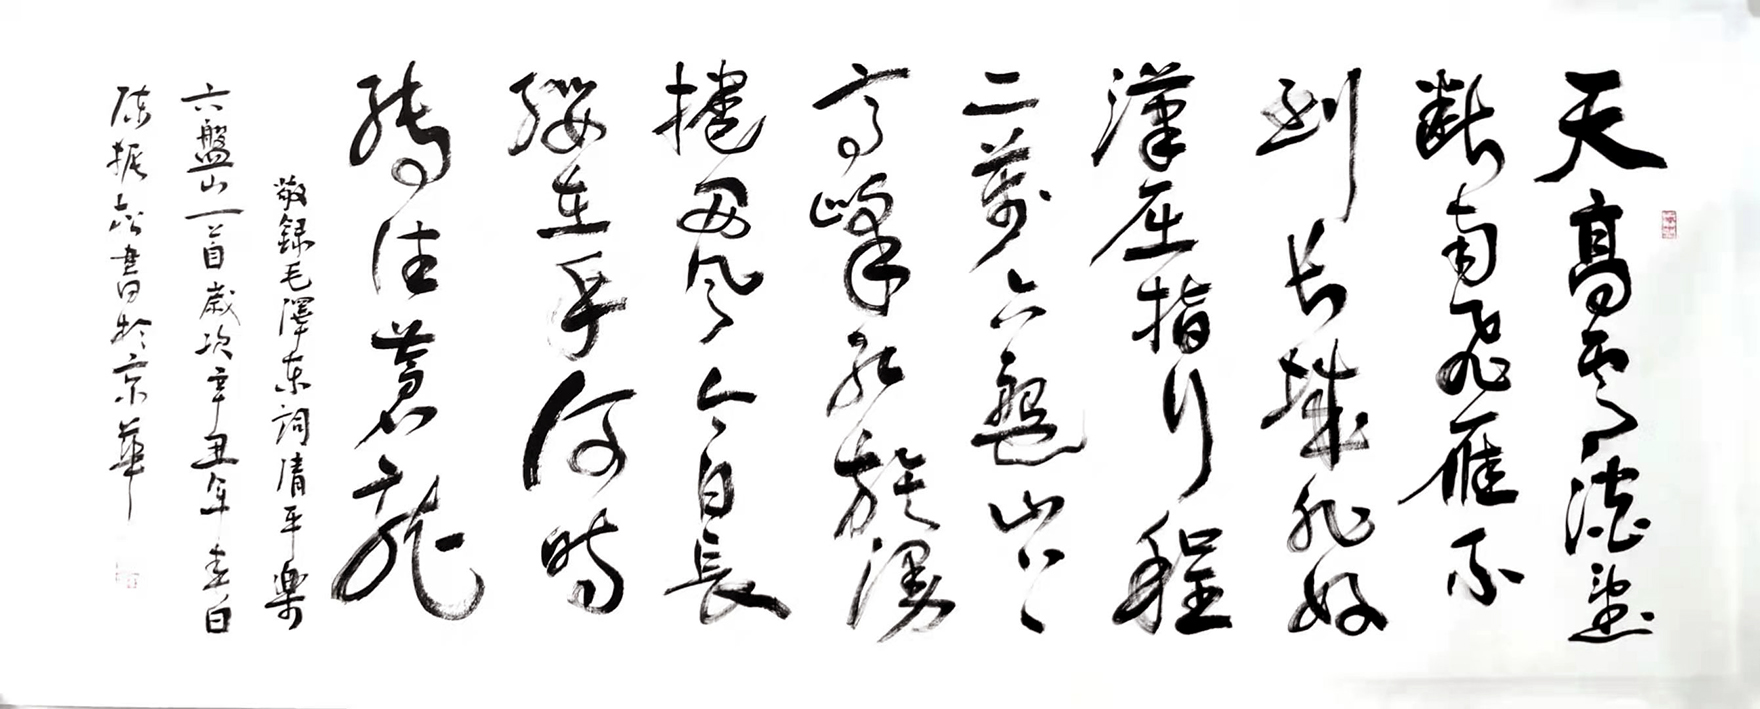 天高雲淡望
斷南飛雁不
到长城非好
漢屈指行程
二萬六盤山上
高峰红旗漫
捲西风今日長
缨在手何時
缚住蒼龍
敬録毛澤东詞清平樂
六盤山一首歲次辛丑年春
陈振書於京華